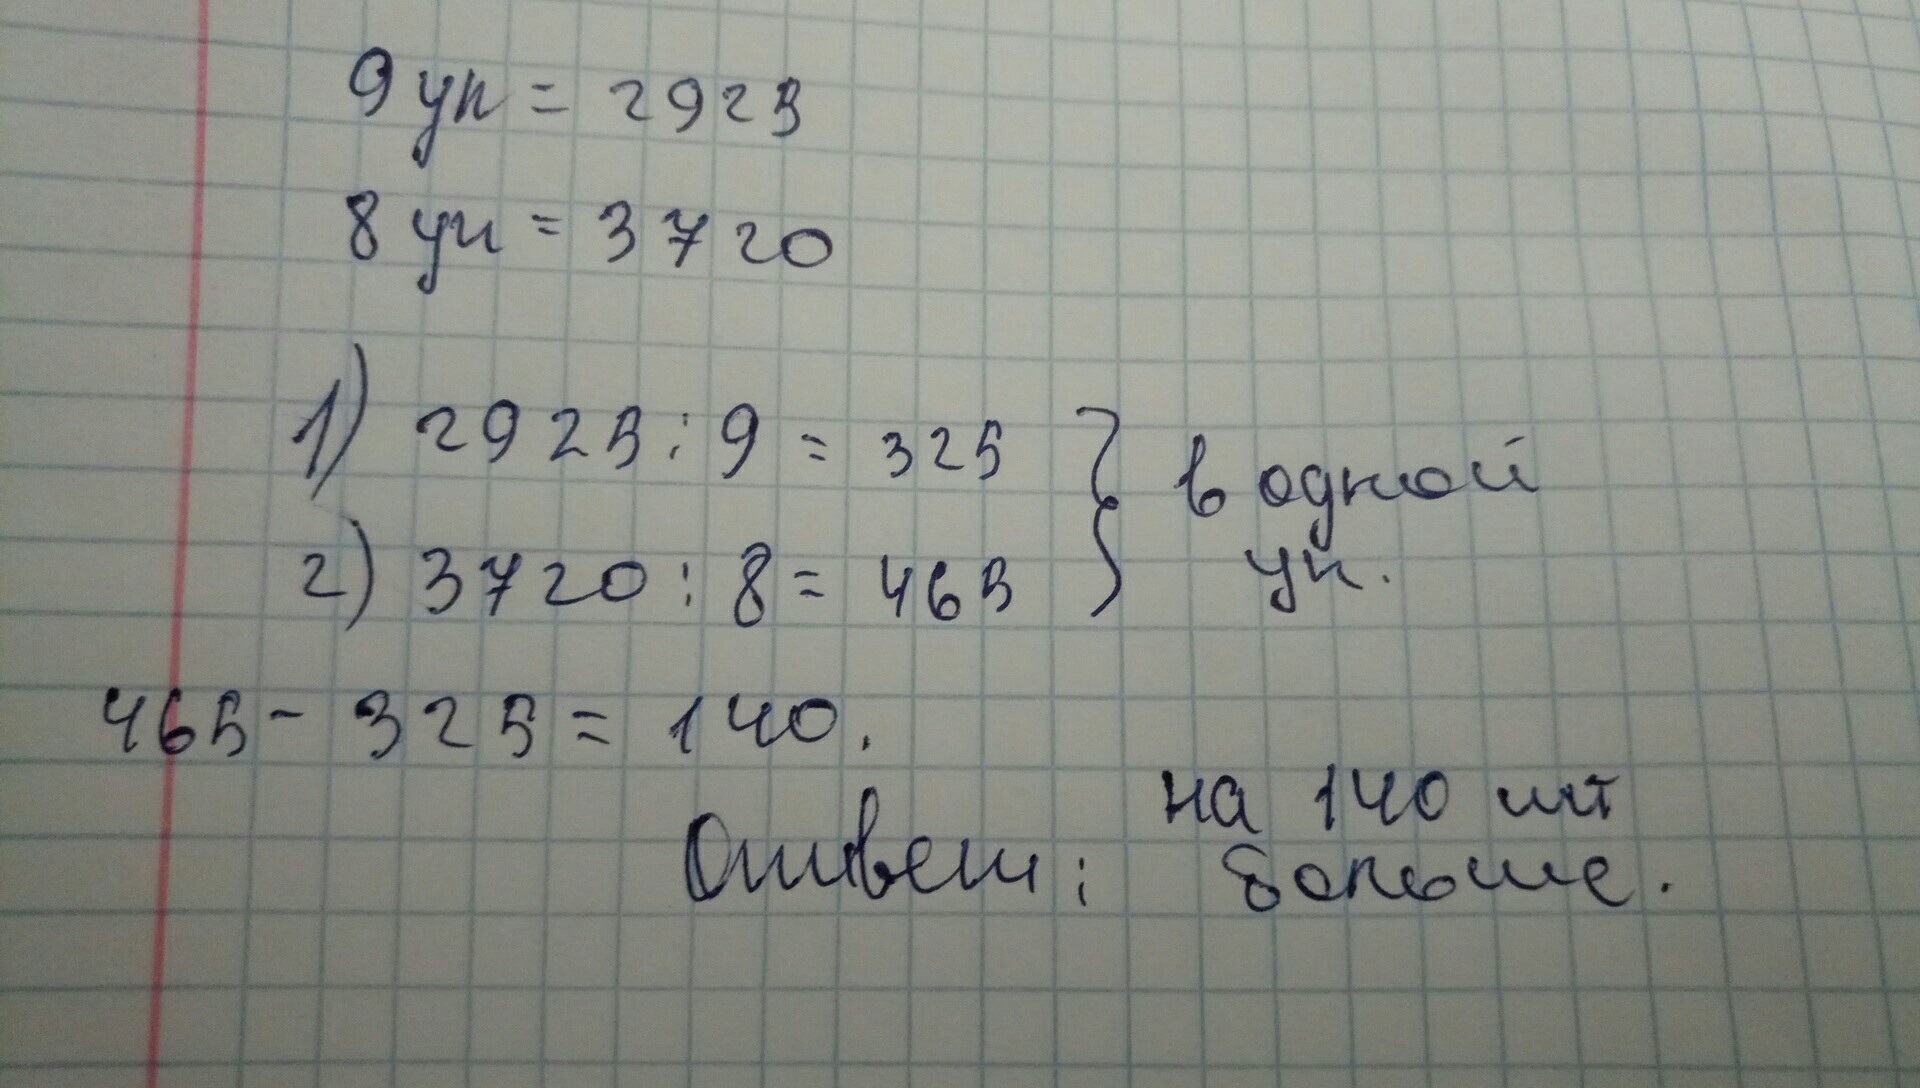 9 уп = 2925
8 уп = 3720
1) 2925 : 9 = 325
2) 3720 : 8 = 465
} в одной
уп.
465 - 325 = 140.
Ответ: на 140 шт
больше.